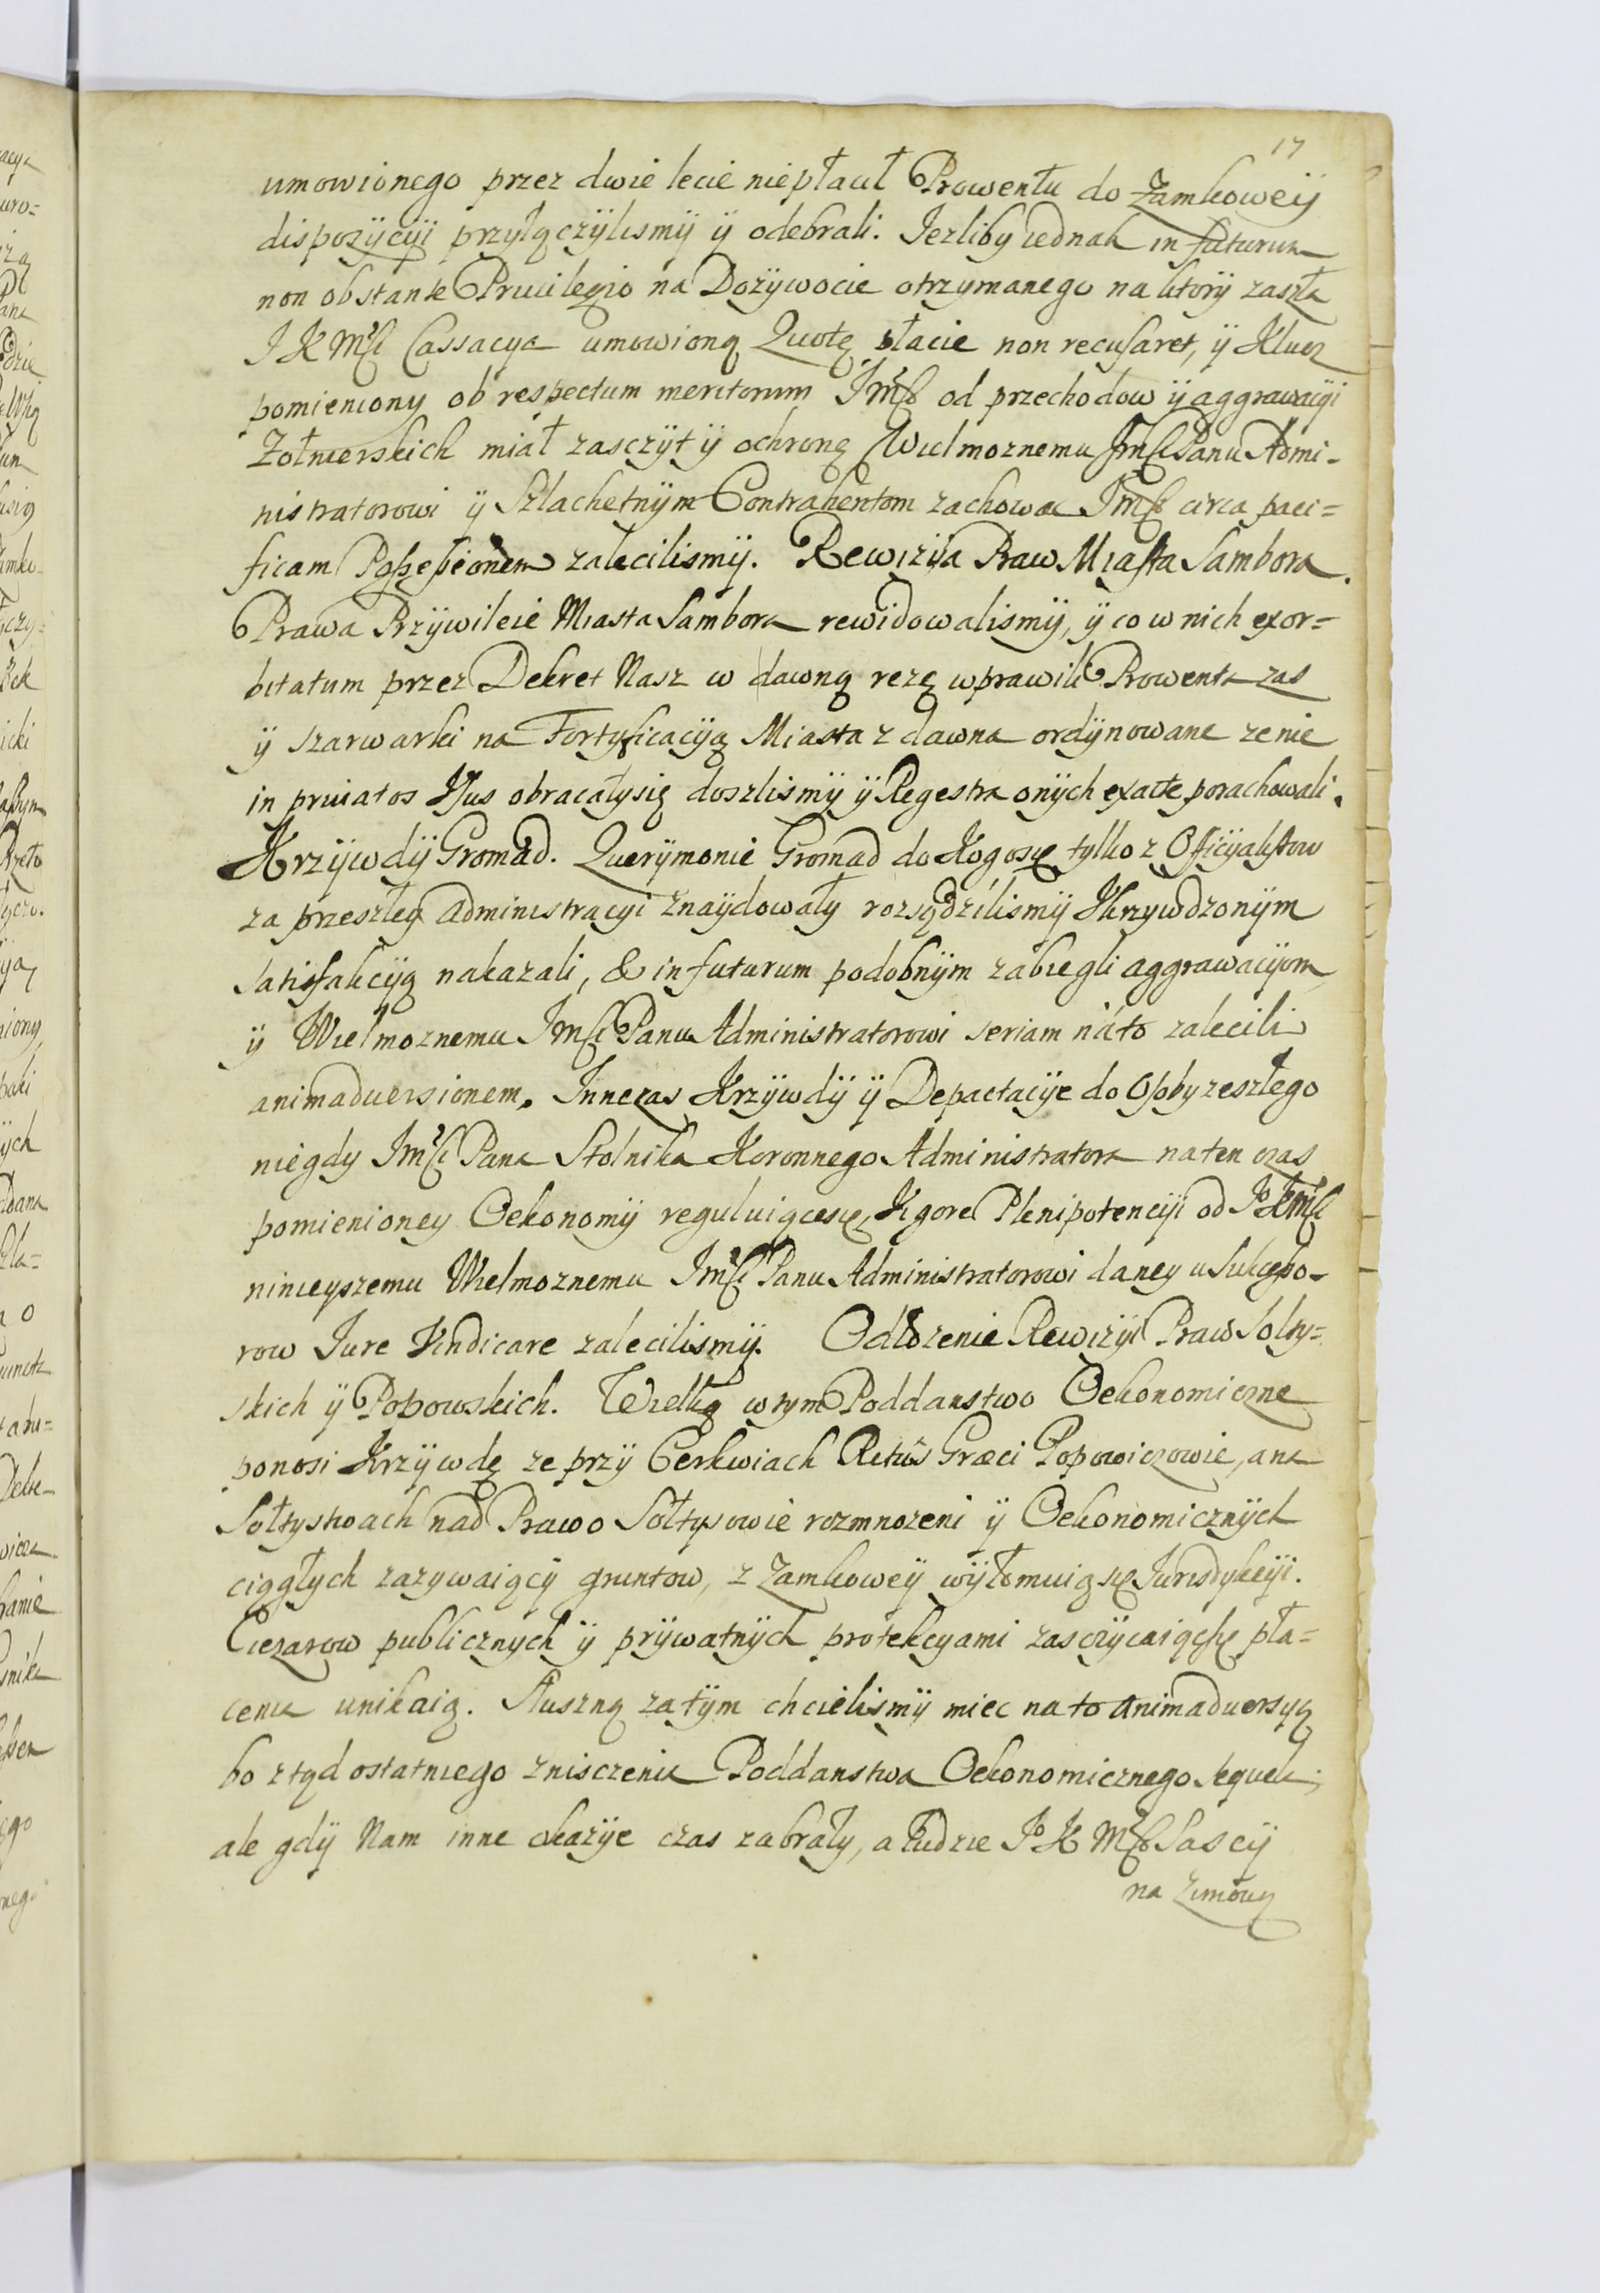 17
umowionego przez dwie lecie niepłacił Prowentu do Zamkoweÿ
dispozÿcÿi przyłączÿlismÿ ÿ odebrali. Iezliby iednak in futurum
non obstante Priuilegio na Dozÿwocie otrzymanego na ktorÿ zaszła
J K Mści Cassacya umowioną Quotę płacic non recusaret, ÿ Klucz
pomieniony ob respectum meritorum Jmści od przechodow ÿ aggrawacÿi
Zołnierskich miał zasczÿt ÿ ochronę Wielmoznemu Jmści Panu Admi-
nistratorowi ÿ Szlachetnÿm Contrahentom zachowac Jmści circa paci=
ficam Possessionem zalecilismÿ. Rewizÿa Praw Miasta Sambora.
Prawa Przÿwileie Miasta Sambora rewidowalismÿ, ÿ co w nich exor=
bitatum przez Dekret Nasz w dawną rezę wprawili Prowenta zas
ÿ szarwarki na Fortyficacÿą Miasta z dawna ordÿnowane ze nie
in priuatos Vsus obracałysię doszlismÿ ÿ Regestra onÿch exacte porachowali.
Krzÿwdÿ Gromad. Querÿmonie Gromad do Kogosię tylko z Officÿalistow
za przeszłeÿ administracyi znaydowały rozsądzilismÿ Vkrzywdzonÿm
satisfakcÿą nakazali, & in futurum podobnÿm zabiegli aggrawacÿom
ÿ Wielmoznemu Jmści Panu Administratorowi seriam nato zalecili
animaduersionem. Innezas Krzÿwdÿ ÿ Depactacÿe do Osoby zeszłego
niegdy Jmści Pana Stolnika Koronnego Administratora na ten czas
pomienioney Oekonomÿ reguluiącesię, Vigore Plenipotencÿi od Jo Kmści
ninieyszemu Wielmoznemu Jmści Panu Administratorowi daney u Sukcesso-
row Iure Vindicare zalecilismÿ. Odłozenie Rewizÿi Praw Sołty=
skich ÿ Popowskich. Wielką wtym Poddanstwo Oekonomiczne
ponosi Krzÿwdę ze przÿ Cerkwiach Ritus Græci Popowiczowie, ana
Sołtystwach nad Prawo Sołtysowie rozmnozeni ÿ Oekonomicznÿch
ciągłych zazywaiącÿ gruntow, z Zamkoweÿ wÿłomuią się Iurisdykcÿi.
Ciezarow publicznych ÿ prÿwatnÿch protekcyami zasczÿcaiącsię pła=
ceniu unikaią. Słuszną zatÿm chcielismÿ miec na to animaduersyą
bo ztąd ostatniego znisczenia Poddanstwa Oekonomicznego sequela;
ale gdÿ Nam inne okazÿe czas zabrały, a ludzie Jo K Mści Sascÿ
na zimową